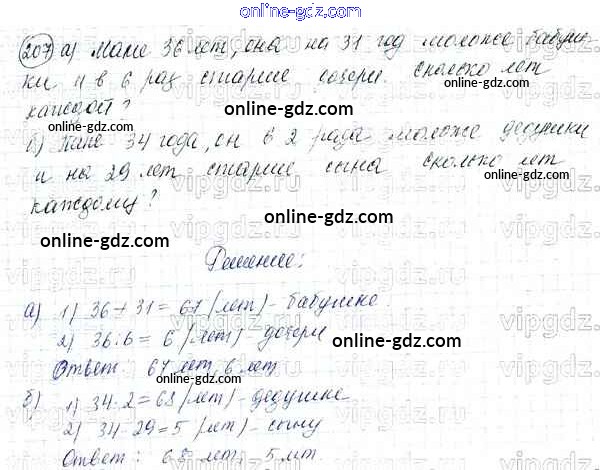 online-gdz.com
207 а) Маме 36 лет, она на 31 год моложе бабуш-
ки и в 6 раз старше дочери. Сколько лет
каждой?
online-gdz.com
б) Папе 34 года, он в 2 раза моложе дедушки
и на 29 лет старше сына Сколько лет
online-gdz.com
каждому?
online-gdz.com
online-gdz.com
Решение:
а) 1) 36 + 31 = 67 (лет) - бабушке
online-gdz.com
2) 36 : 6 = 6 (лет) - дочери
online-gdz.com
Ответ: 67 лет, 6 лет.
online-gdz.com
б) 1) 34 · 2 = 68 (лет) - дедушке
online-gdz.com
2) 34 - 29 = 5 (лет) - сыну
Ответ: 68 лет, 5 лет.
online-gdz.com